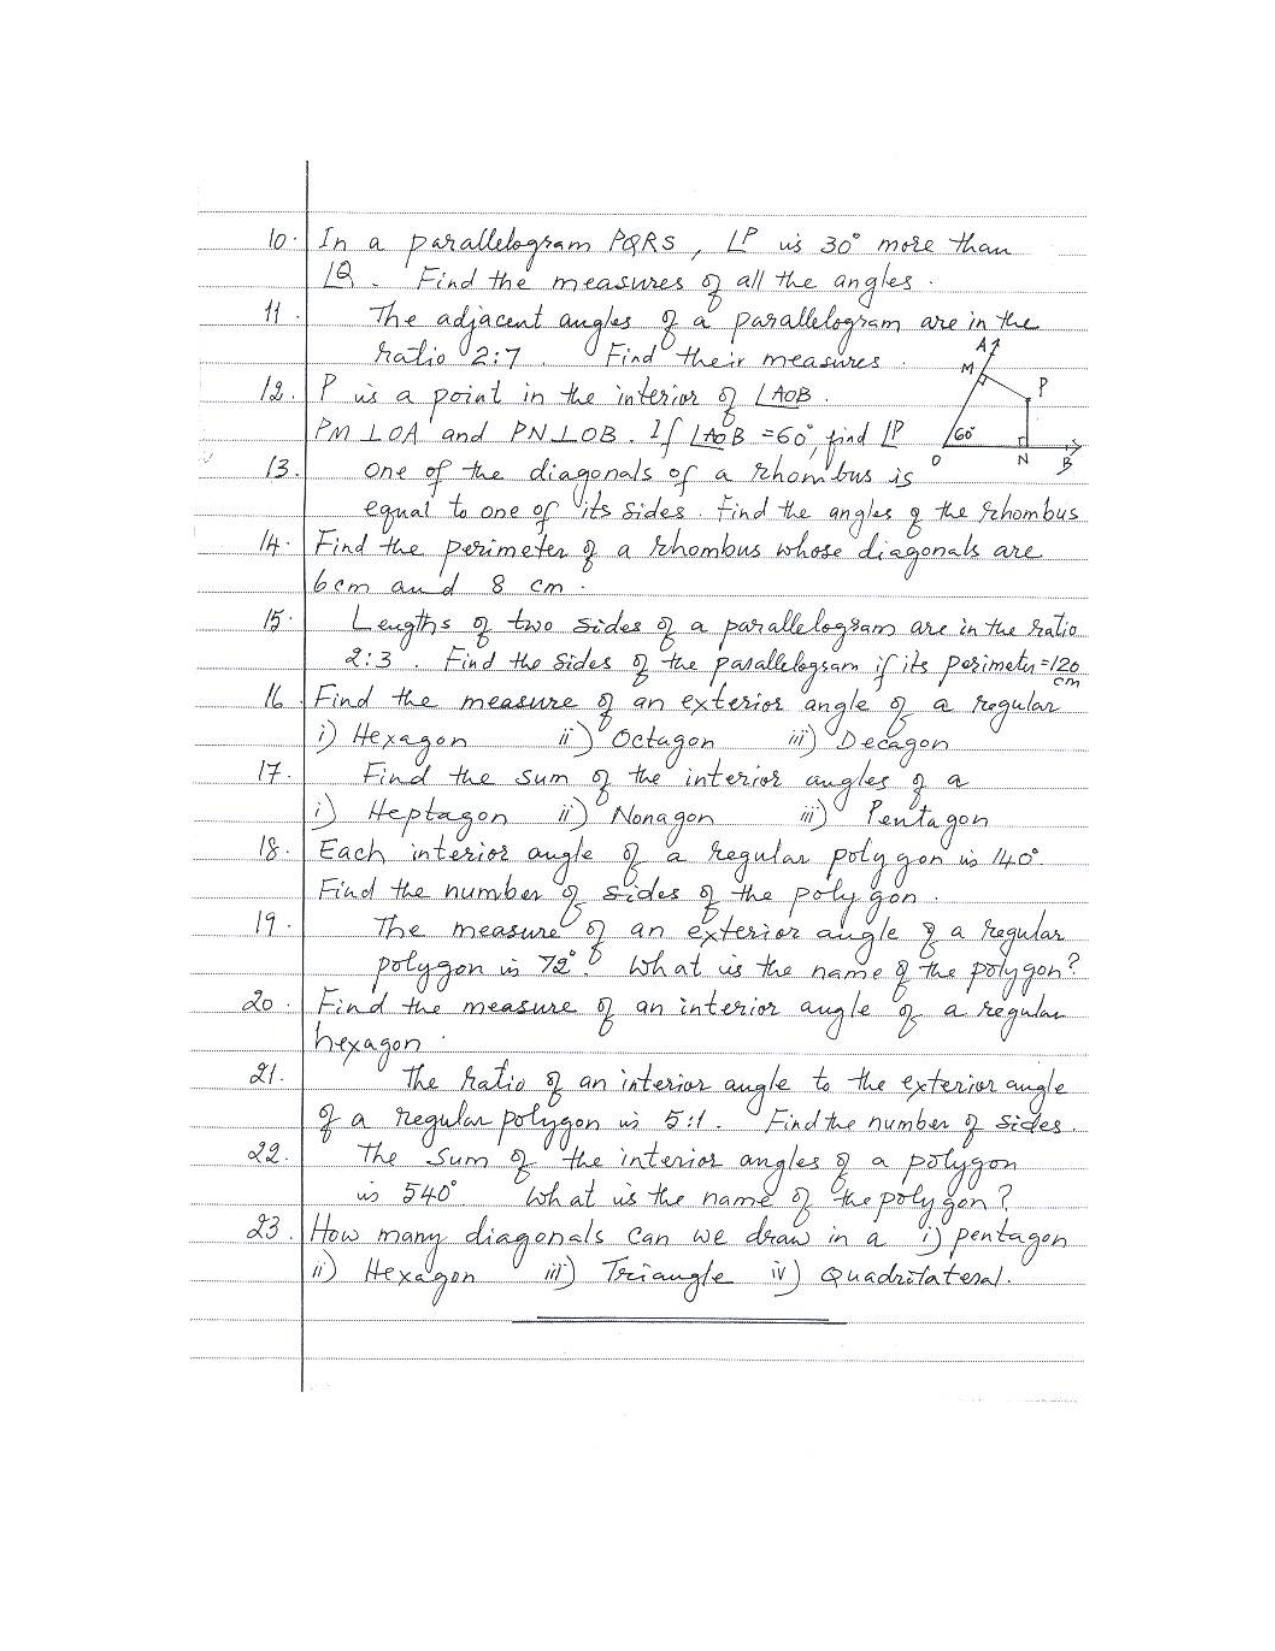 10. In a parallelogram PQRS, ∠P is 30° more than
∠Q. Find the measures of all the angles.
11. The adjacent angles of a parallelogram are in the
ratio 2:7. Find their measures.
12. P is a point in the interior of ∠AOB.
PM ⊥ OA and PN ⊥ OB. If ∠AOB = 60°, find ∠P
A
M
P
60°
O
N
B
13. One of the diagonals of a rhombus is
equal to one of its sides. Find the angles of the rhombus
14. Find the perimeter of a rhombus whose diagonals are
6cm and 8 cm.
15. Lengths of two sides of a parallelogram are in the ratio
2:3. Find the sides of the parallelogram if its perimeter = 120
cm
16. Find the measure of an exterior angle of a regular
i) Hexagon ii) Octagon iii) Decagon
17. Find the sum of the interior angles of a
i) Heptagon ii) Nonagon iii) Pentagon
18. Each interior angle of a regular polygon is 140°.
Find the number of sides of the polygon.
19. The measure of an exterior angle of a regular
polygon is 72°. What is the name of the polygon?
20. Find the measure of an interior angle of a regular
hexagon.
21. The ratio of an interior angle to the exterior angle
of a regular polygon is 5:1. Find the number of sides.
22. The sum of the interior angles of a polygon
is 540°. What is the name of the polygon?
23. How many diagonals can we draw in a i) pentagon
ii) Hexagon iii) Triangle iv) Quadrilateral.